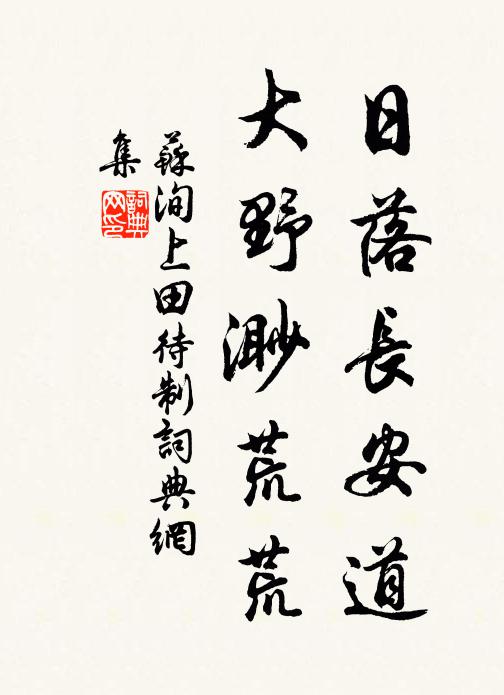 日落長安道
大野渺荒荒
蘇洵上田待制詞典網
集
詞典網印